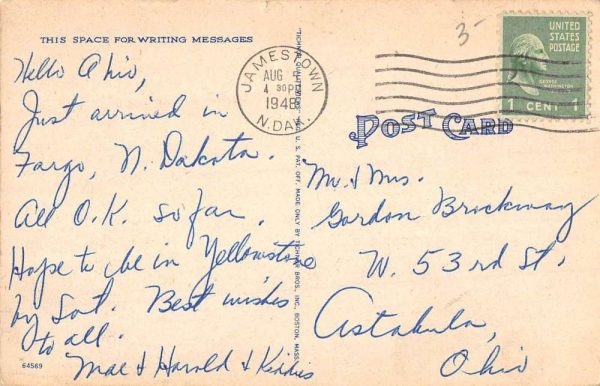 THIS SPACE FOR WRITING MESSAGES
Hello Ohio,
Just arrived in
Fargo, N. Dakota.
All O.K. so far.
Hope to be in Yellowstone
by Sat. Best wishes
to all.
Mae & Harold & Kiddies
64569
JAMESTOWN
AUG
4 30 PM
1948
N.DAK.
3-
UNITED
STATES
POSTAGE
GEORGE
WASHINGTON
1 CENT 1
POST CARD
Mr. & Mrs.
Gordon Brockway
W. 53rd St.
Astabula,
Ohio